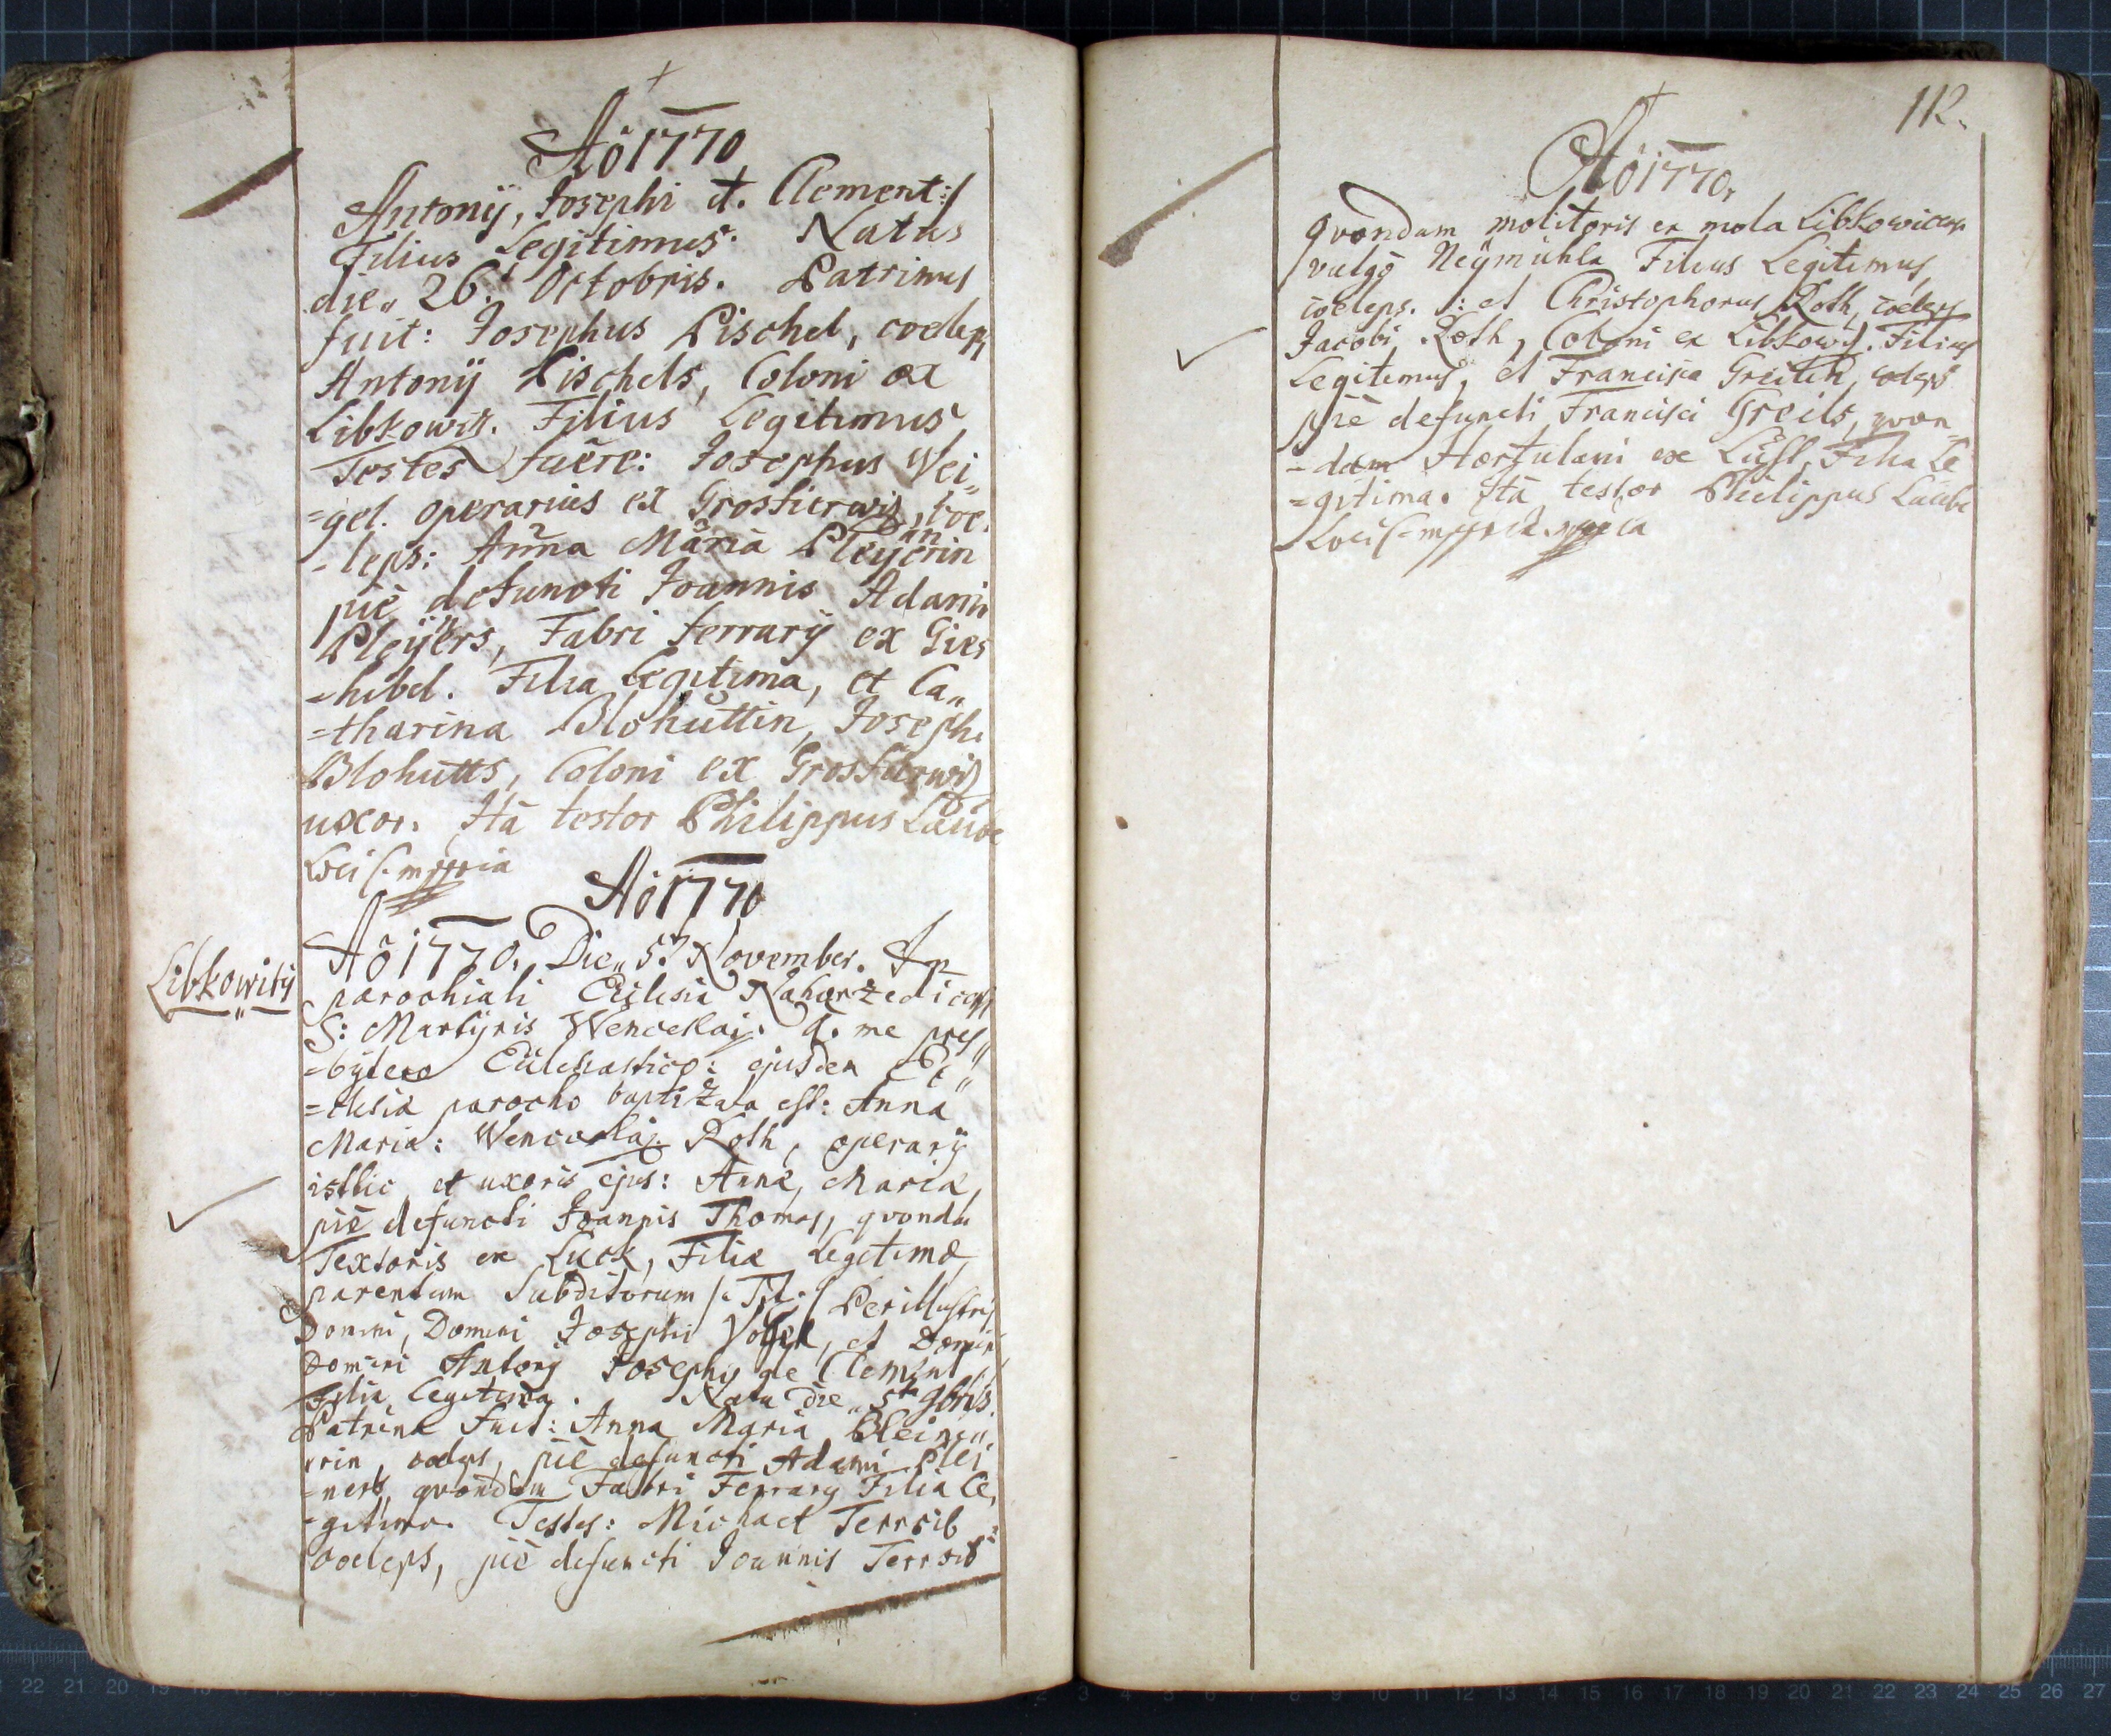 Aõ 1770
Antonÿ, Josephi d. Clement:/
Filius Legitimus. Natus
die„ 26.t Octobris. Patrinus
fuit: Josephus Pischel, coeleps
Antonÿ Pischels, Coloni ex
Libkowitz. Filius Legitimus,
Testes fuêre: Josephus Wei„
=gel. operarius ex Grostierwiz, coe.
-leps: Anna Maria Pleÿerin
piè defuncti Joannis Adami
Pleÿers, Fabri ferrarÿ ex Gies
-hibel. Filia Legitima, et Ca„
=tharina Blohuttin, Josephi
Blohutts, Coloni ex Grostierwiz
uxor. Ità testor Philippus Laube
Loci C. mppria
Aõ 1770
Libkowitz
Aõ 1770. Die„ 5.t November. In
parochiali Ecclesia Naharzedicensi
S: Martÿris Wenceslai. à me pres„
=bÿtero Ecclesiastico: ejusdem Ec„
=clesiæ parocho baptizata est: Anna
Maria: Wenceslai Roth, operarÿ
istlic et uxoris ejus: Annæ, Mariæ,
piè defuncti Joannis Thomas, qvondā
Textoris ex Luck, Filiæ Legitimæ
parentum Subditorum /: Tit: / Perillustris
Domini, Domini Josephi et Domini
Domini Antonÿ Josephÿ de Clement
Filia Legitima. Nata die„ 5ta 9bris
Patrina fuit: Anna Maria Pleine„
rin, coeleps, piè defuncti Adami Plei
=ners, qvondam Fabri Ferrarÿ Filia Le,
-gitima. Testes: Michael Terrsib
coeleps, piè defuncti Joannis Terrsib
112.
Aõ 1770,
qvondam molitoris ex mola Libkowicens
vulgò Neÿmühle Filius Legitimus,
coeleps. : et Christophorus Roth, coeleps
Jacobi Roth, Coloni ex Libkowiz. Filius
Legitimus, et Francisca Greilin, coeleps
piè defuncti Francisci Greils, qvon
-dam Hortulani ex Filia Le
=gitima. Ità testor Philippus Laube
Loci C. mppria